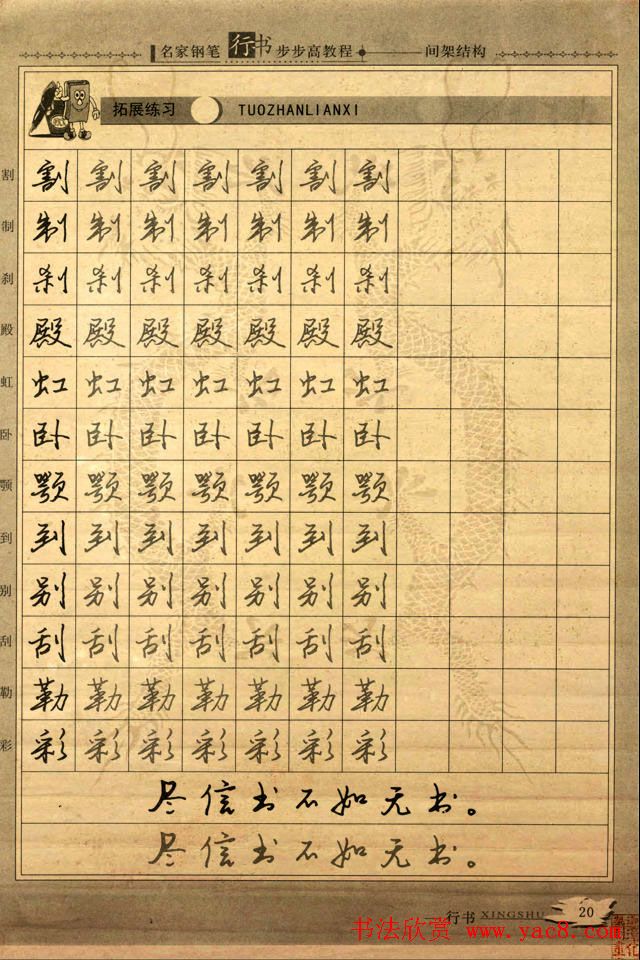 名家钢笔行书步步高教程 间架结构
拓展练习 TUOZHANLIANXI
割 割 割 割 割 割 割 割
制 制 制 制 制 制 制 制
刹 刹 刹 刹 刹 刹 刹 刹
殿 殿 殿 殿 殿 殿 殿 殿
虹 虹 虹 虹 虹 虹 虹 虹
卧 卧 卧 卧 卧 卧 卧 卧
颚 颚 颚 颚 颚 颚 颚 颚
到 到 到 到 到 到 到 到
别 别 别 别 别 别 别 别
刮 刮 刮 刮 刮 刮 刮 刮
勒 勒 勒 勒 勒 勒 勒 勒
彩 彩 彩 彩 彩 彩 彩 彩
尽信书不如无书。
尽信书不如无书。
行书 XINGSHU 20
书法欣赏 www.yac8.com